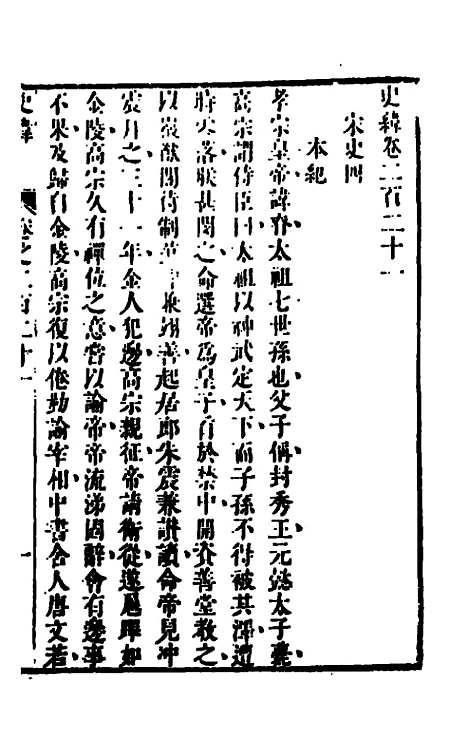 史緯卷二百二十一
宋史四
本紀
孝宗皇帝諱眘太祖七世孫也父子偁封秀王元懿太子薨
高宗謂侍臣曰太祖以神武定天下而子孫不得被其澤遭
時零落朕甚閔之命選帝爲皇子育於禁中開資善堂教之
以徽猷閣待制范冲兼翊善起居郎朱震兼讃讀命帝見冲
震拜之三十一年金人犯邊高宗親征帝請衛從遂扈蹕如
金陵高宗久有禪位之意嘗以諭帝帝流涕固辭會有邊事
不果及歸自金陵高宗復以倦勤諭宰相中書舍人唐文若
史緯 卷之二百二十一 一